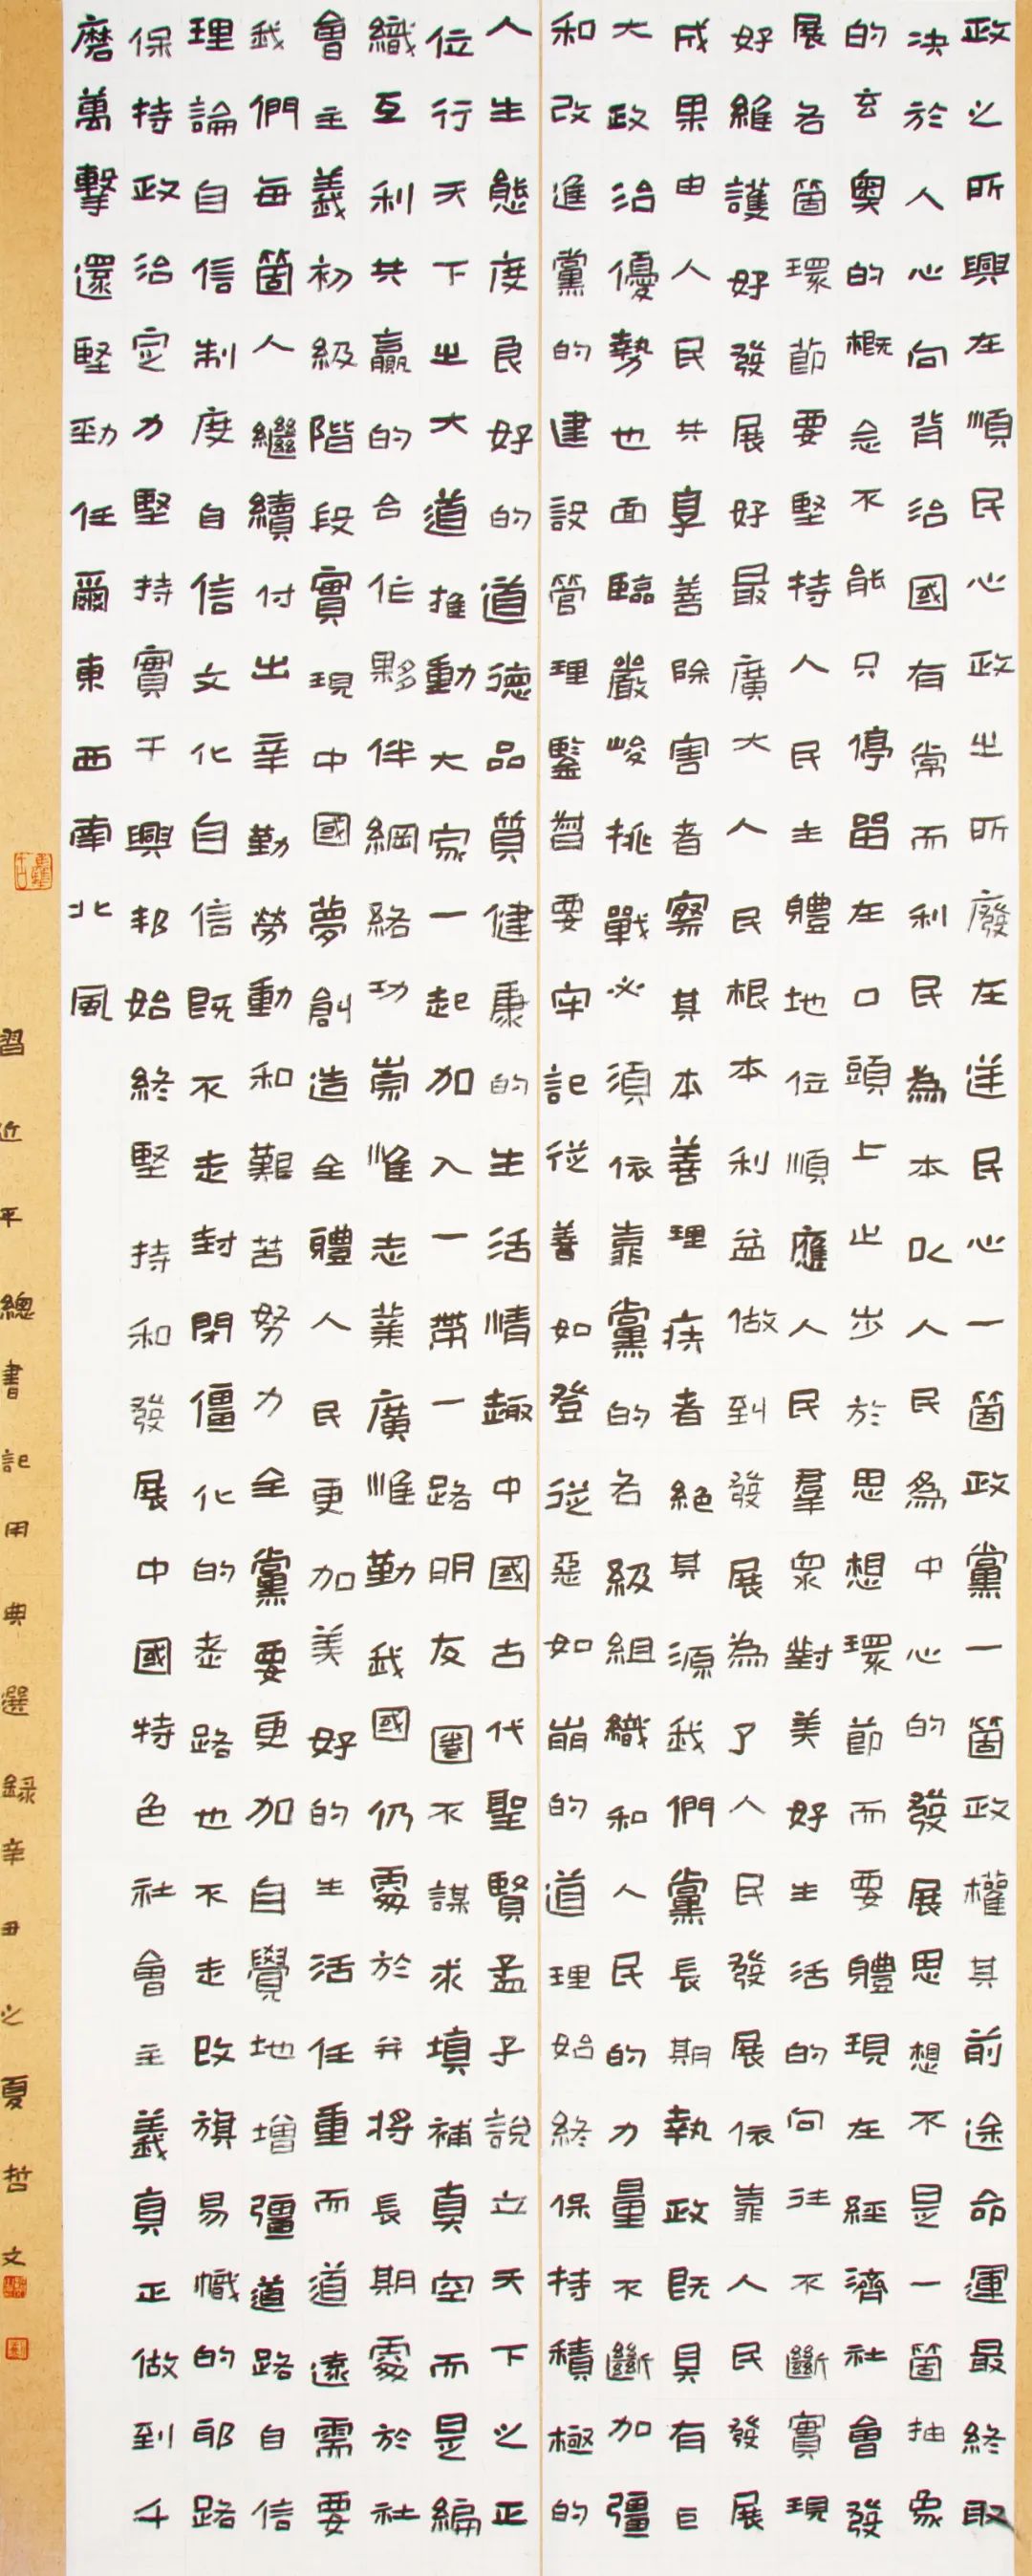 政之所興在順民心政之所廢在逆民心一箇政黨一箇政權其前途命運最終取
決於人心向背治國有常而利民為本以人民為中心的發展思想不是一箇抽象
的玄奧的概念不能只停留在口頭上止步於思想環節而要體現在經濟社會發
展各箇環節要堅持人民主體地位順應人民羣眾對美好生活的向往不斷實現
好維護好發展好最廣大人民根本利益做到發展為了人民發展依靠人民發展
成果由人民共享善除害者察其本善理疾者絕其源我們黨長期執政既具有巨
大政治優勢也面臨嚴峻挑戰必須依靠黨的各級組織和人民的力量不斷加彊
和改進黨的建設管理鑒督要牢記從善如登從惡如崩的道理始終保持積極的
人生態度良好的道德品質健康的生活情趣中國古代聖賢孟子說立天下之正
位行天下之大道推動大家一起加入一帶一路朋友圈不謀求填補真空而是編
織互利共贏的合作夥伴網絡功崇惟志業廣惟勤我國仍處於并將長期處於社
會主義初級階段實現中國夢創造全體人民更加美好的生活任重而道遠需要
我們每箇人繼續付出辛勤勞動和艱苦努力全黨要更加自覺地增彊道路自信
理論自信制度自信文化自信既不走封閉僵化的老路也不走改旗易幟的邪路
保持政治定力堅持實干興邦始終堅持和發展中國特色社會主義真正做到千
磨萬擊還堅勁任爾東西南北風
習近平總書記用典選錄辛丑之夏哲文